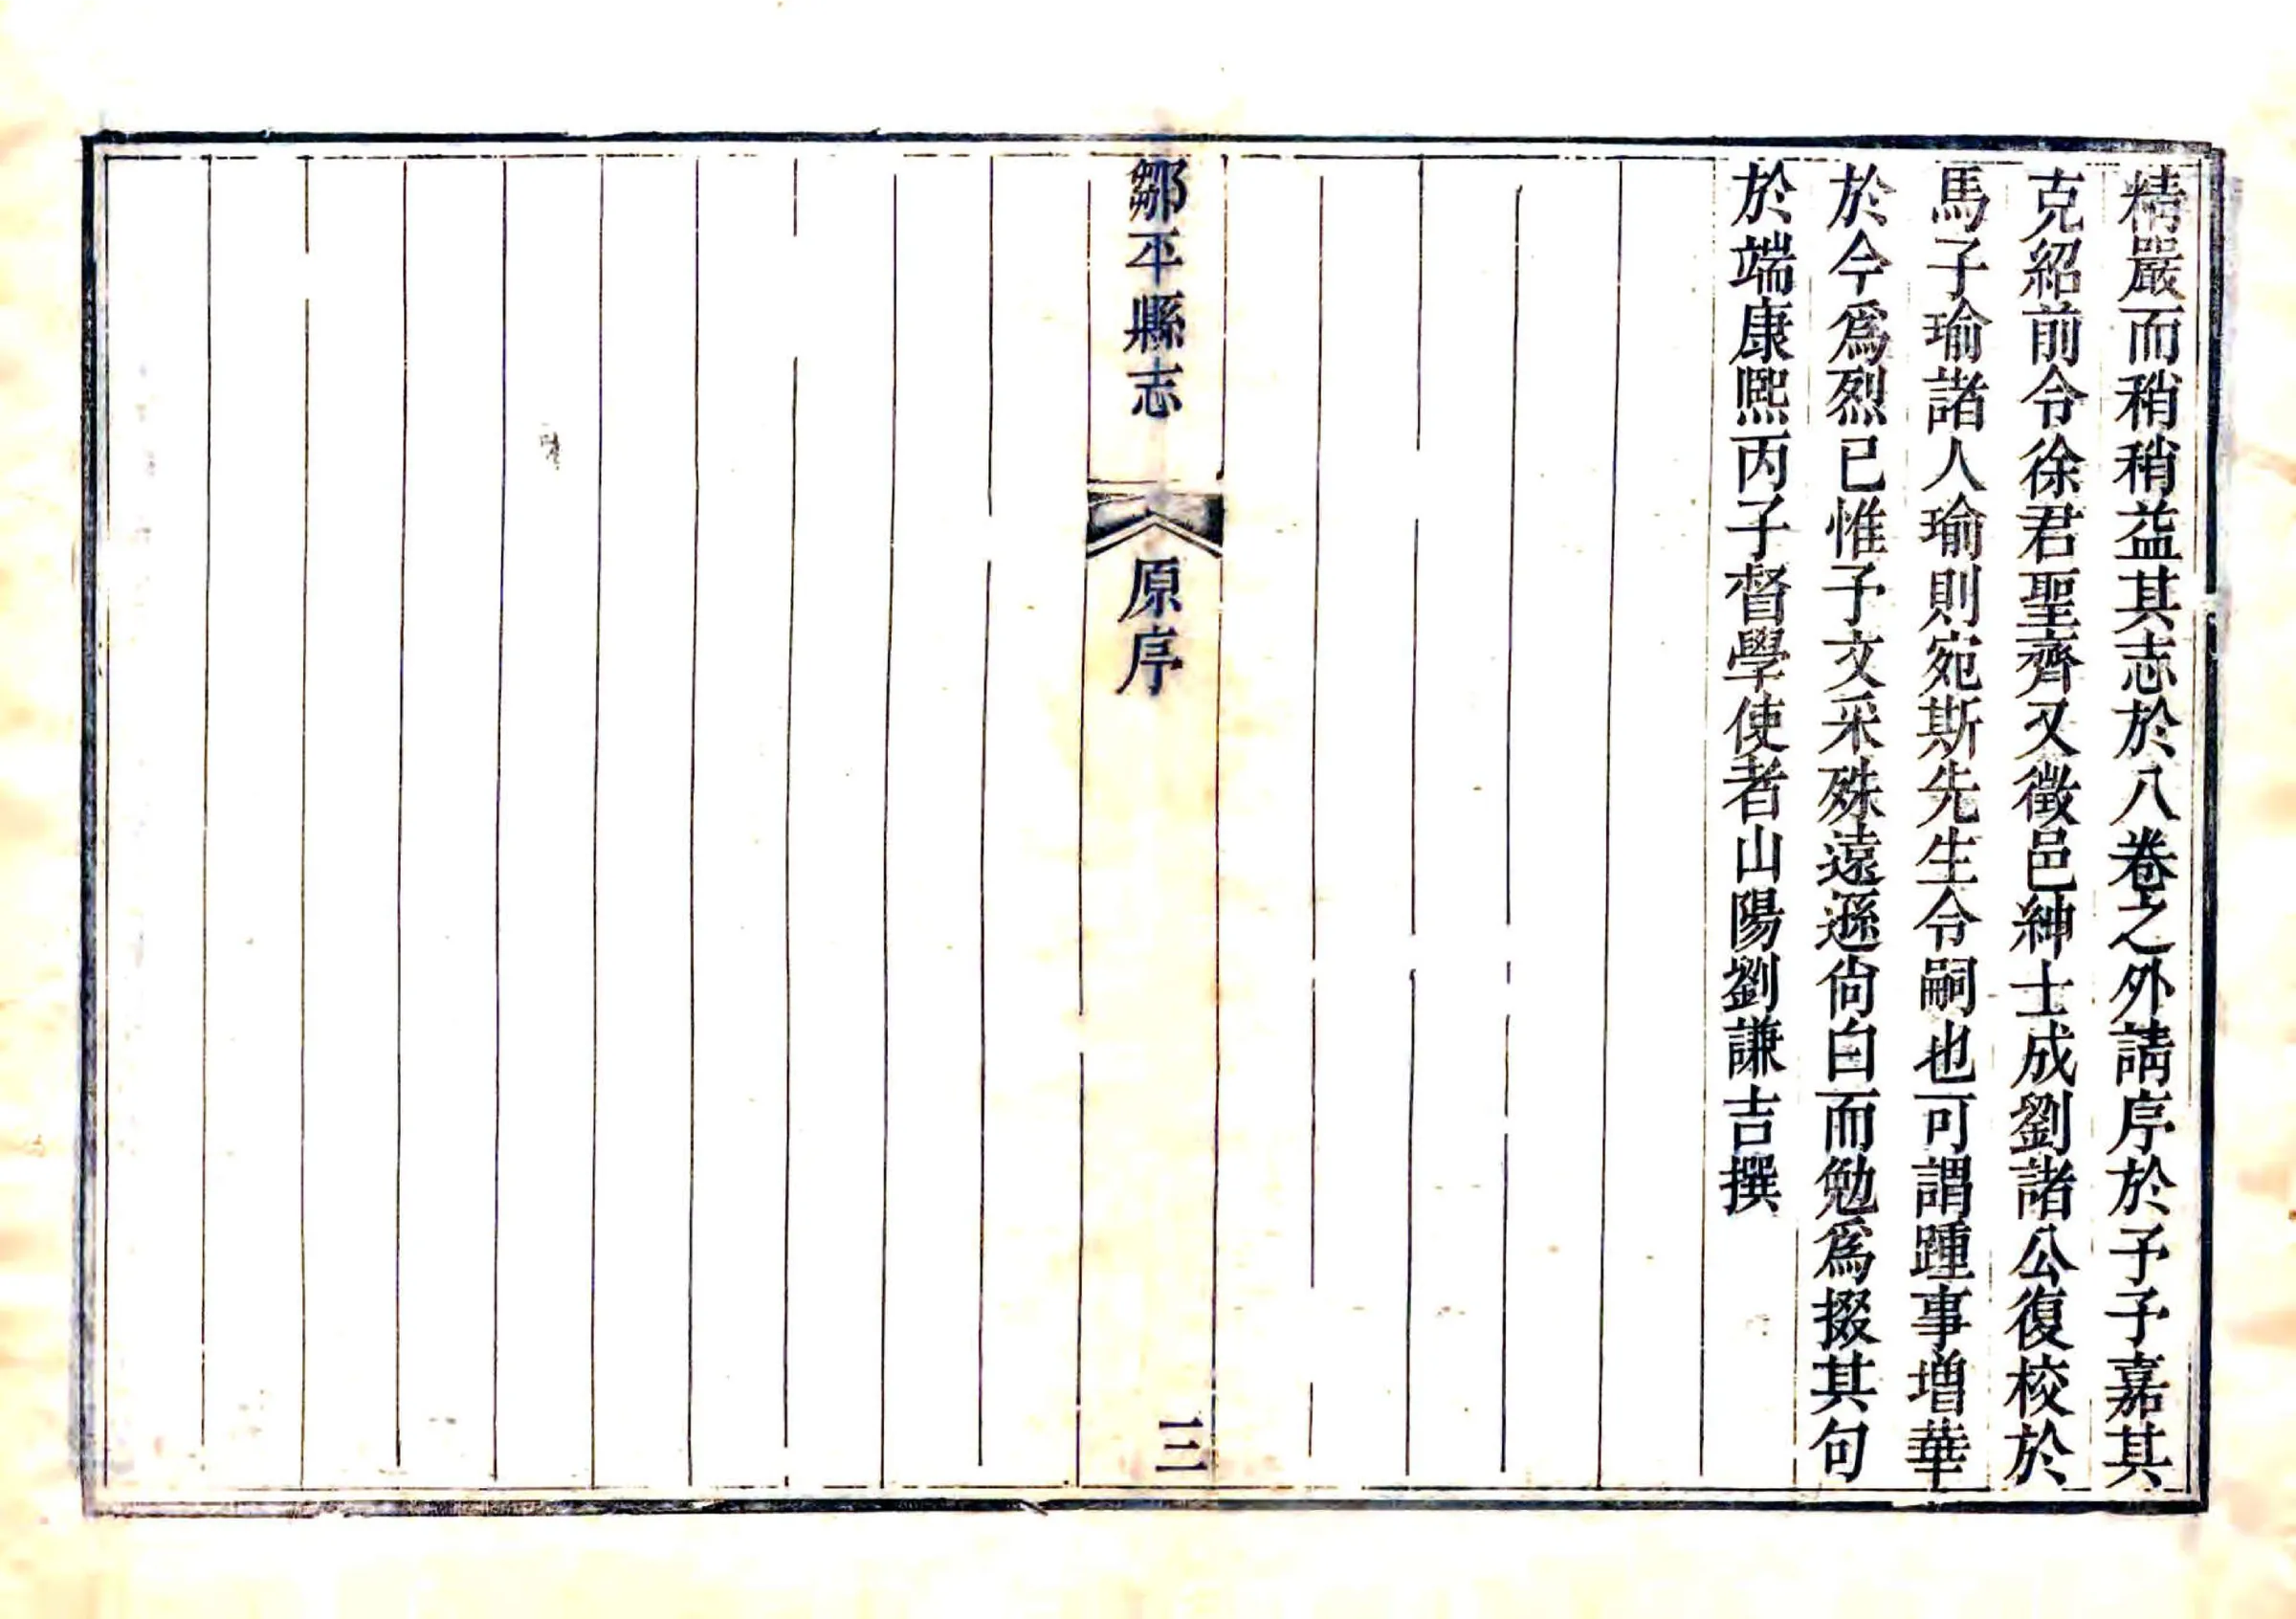 精嚴而稍稍益其志於八卷之外請序於予予嘉其
克紹前令徐君聖齊又徵邑紳士成劉諸公復校於
馬子瑜諸人瑜則宛斯先生令嗣也可謂踵事增華
於今爲烈已惟予文采殊遠遜尙白而勉爲掇其句
於端康熙丙子督學使者山陽劉謙吉撰
鄒平縣志
原序
三